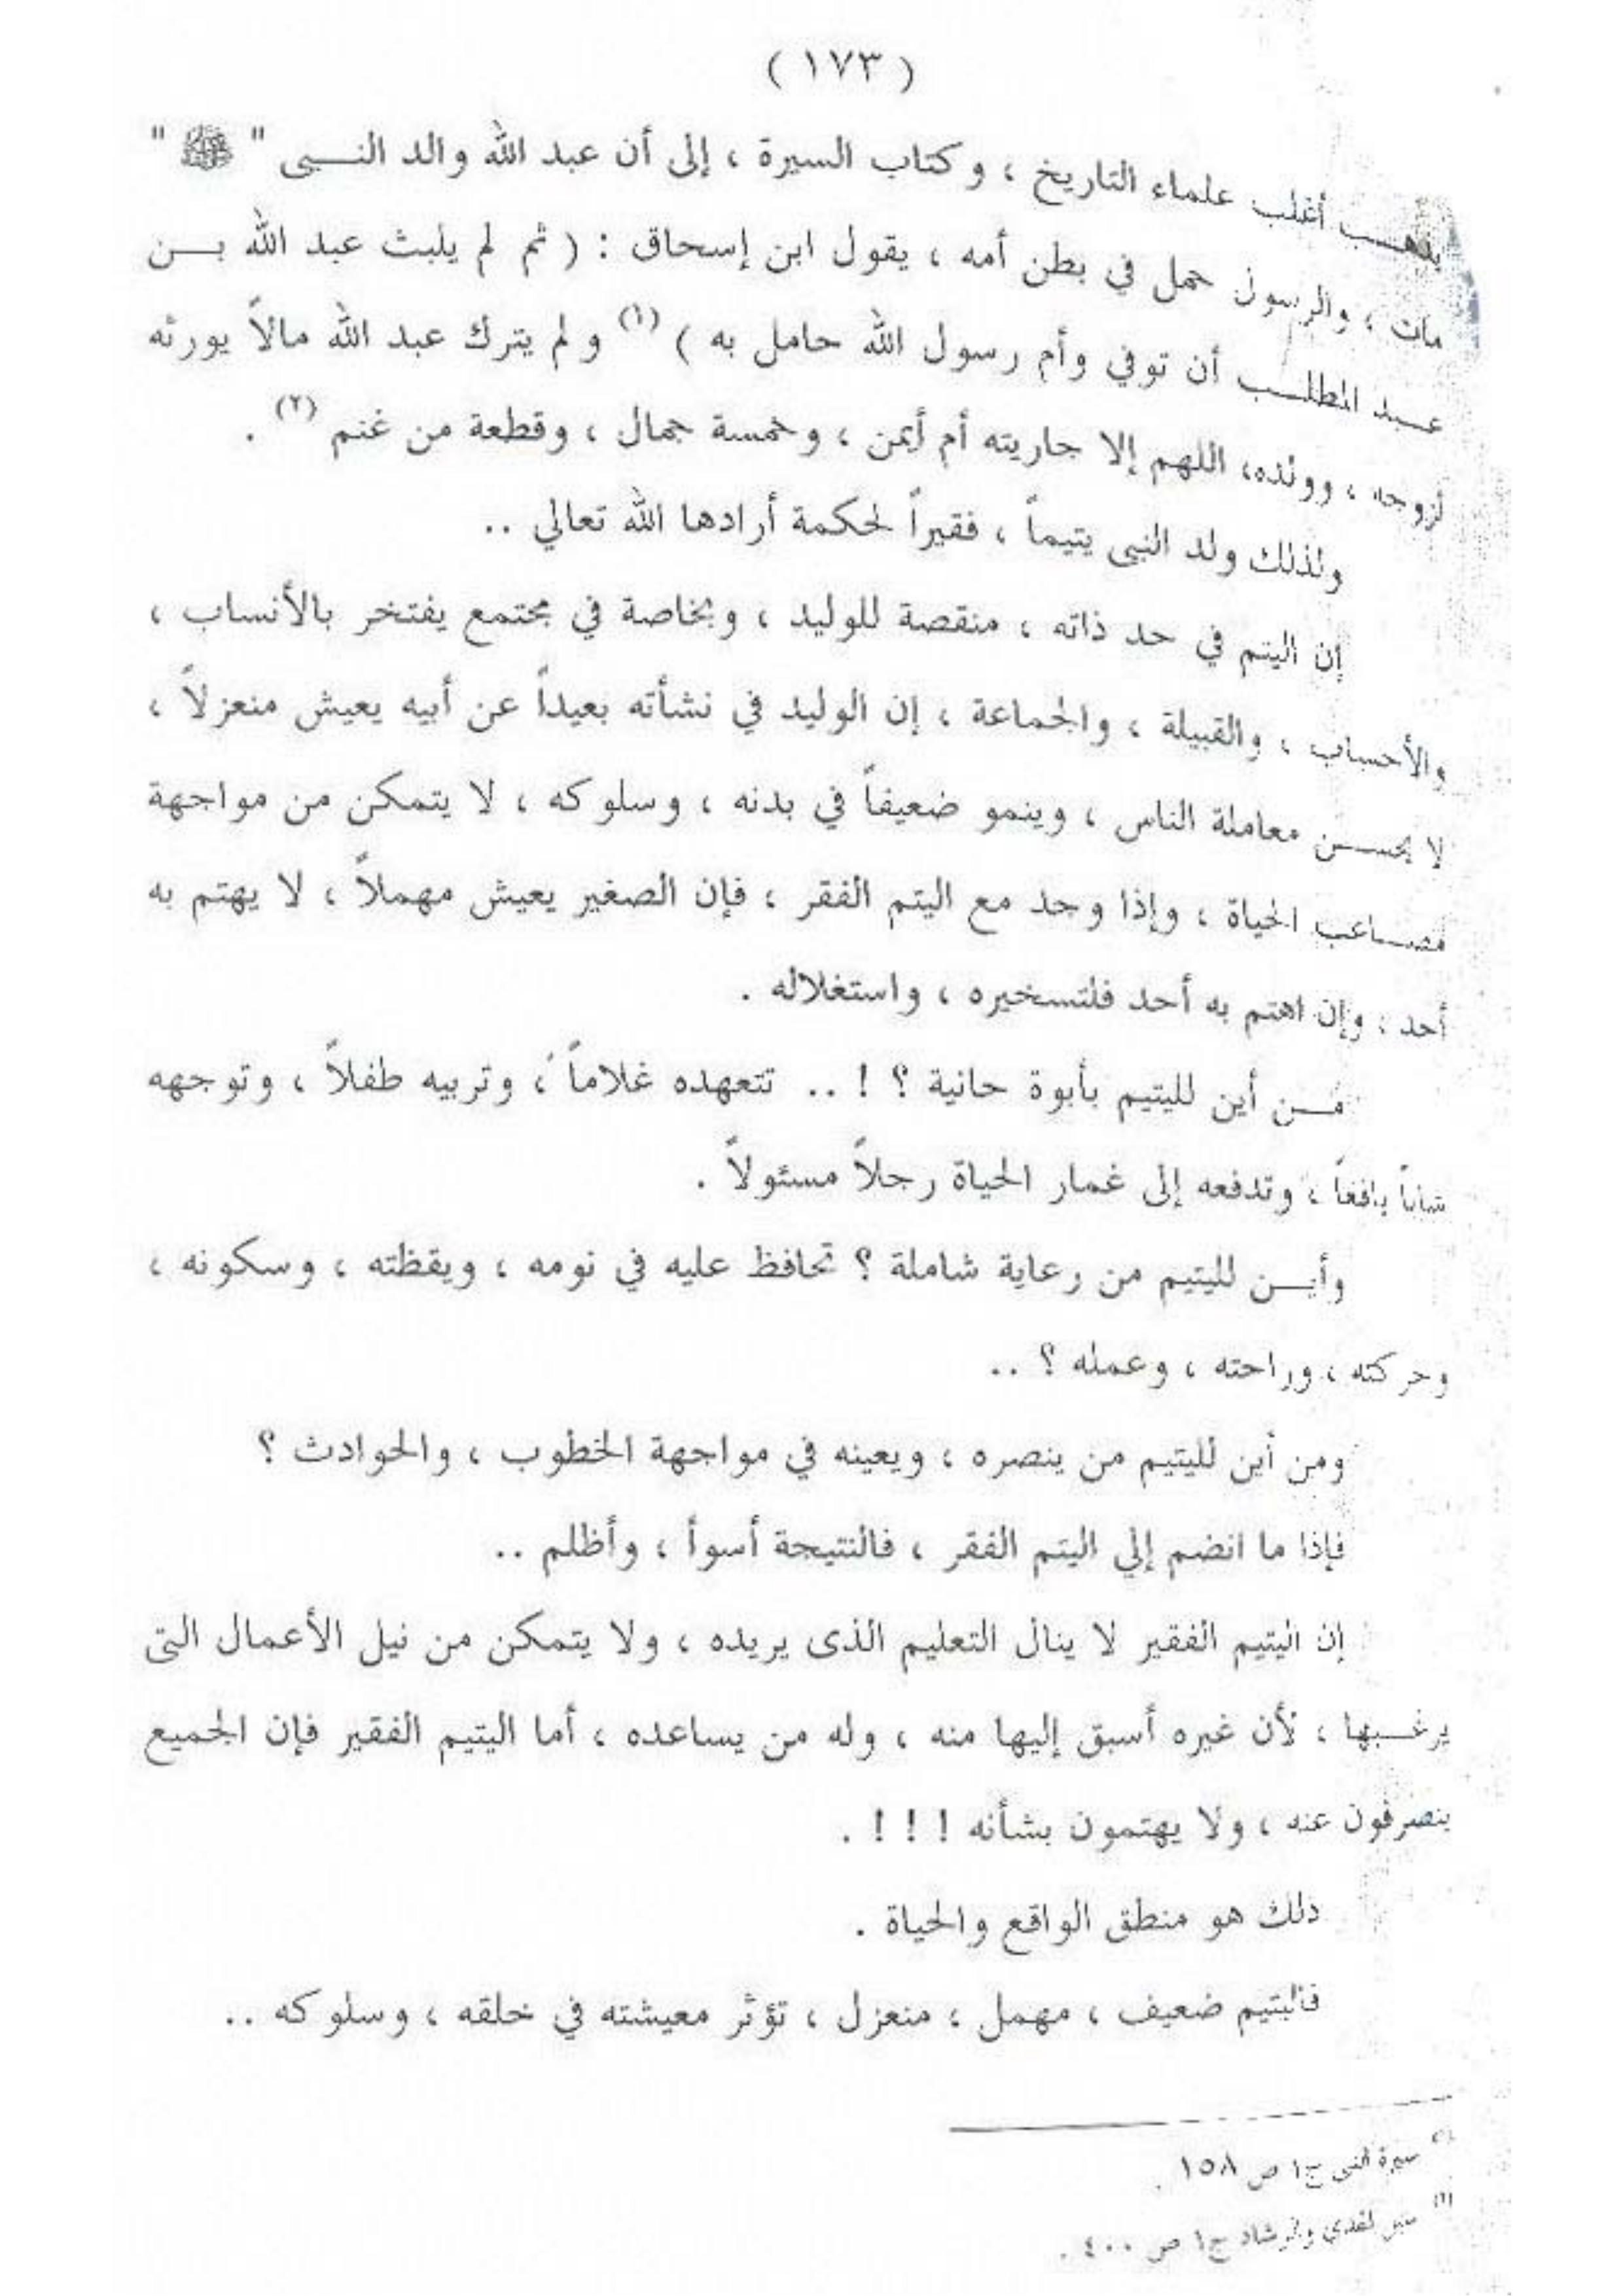 ( ١٧٣ )
يذهب أغلب علماء التاريخ ، وكتاب السيرة ، إلى أن عبد الله والد النبى " ﷺ "
مات ، والرسول حمل في بطن أمه ، يقول ابن إسحاق : ( ثم لم يلبث عبد الله بن
عبد المطلب أن توفي وأم رسول الله حامل به ) (١) ولم يترك عبد الله مالاً يورثه
لزوجه ، وولده، اللهم إلا جاريته أم أيمن ، وخمسة جمال ، وقطعة من غنم (٢) .
ولذلك ولد النبى يتيماً ، فقيراً لحكمة أرادها الله تعالي ..
إن اليتم في حد ذاته ، منقصة للوليد ، وبخاصة في مجتمع يفتخر بالأنساب ،
والأحساب ، والقبيلة ، والجماعة ، إن الوليد في نشأته بعيداً عن أبيه يعيش منعزلاً ،
لا يحسن معاملة الناس ، وينمو ضعيفاً في بدنه ، وسلوكه ، لا يتمكن من مواجهة
مصاعب الحياة ، وإذا وجد مع اليتم الفقر ، فإن الصغير يعيش مهملاً ، لا يهتم به
أحد ، وإن اهتم به أحد فلتسخيره ، واستغلاله .
من أين لليتيم بأبوة حانية ؟ ! .. تتعهده غلاماً ، وتربيه طفلاً ، وتوجهه
شاباً يافعاً ، وتدفعه إلى غمار الحياة رجلاً مسئولاً .
وأين لليتيم من رعاية شاملة ؟ تحافظ عليه في نومه ، ويقظته ، وسكونه ،
وحركته ، وراحته ، وعمله ؟ ..
ومن أين لليتيم من ينصره ، ويعينه في مواجهة الخطوب ، والحوادث ؟
فإذا ما انضم إلي اليتم الفقر ، فالنتيجة أسوأ ، وأظلم ..
إن اليتيم الفقير لا ينال التعليم الذى يريده ، ولا يتمكن من نيل الأعمال التى
يرغبها ، لأن غيره أسبق إليها منه ، وله من يساعده ، أما اليتيم الفقير فإن الجميع
ينصرفون عنه ، ولا يهتمون بشأنه ! ! ! .
ذلك هو منطق الواقع والحياة .
فاليتيم ضعيف ، مهمل ، منعزل ، تؤثر معيشته في خلقه ، وسلوكه ..
(١) سيرة النبى ج١ ص ١٥٨ .
(٢) سبل الهدى والرشاد ج١ ص ٤٠٠ .